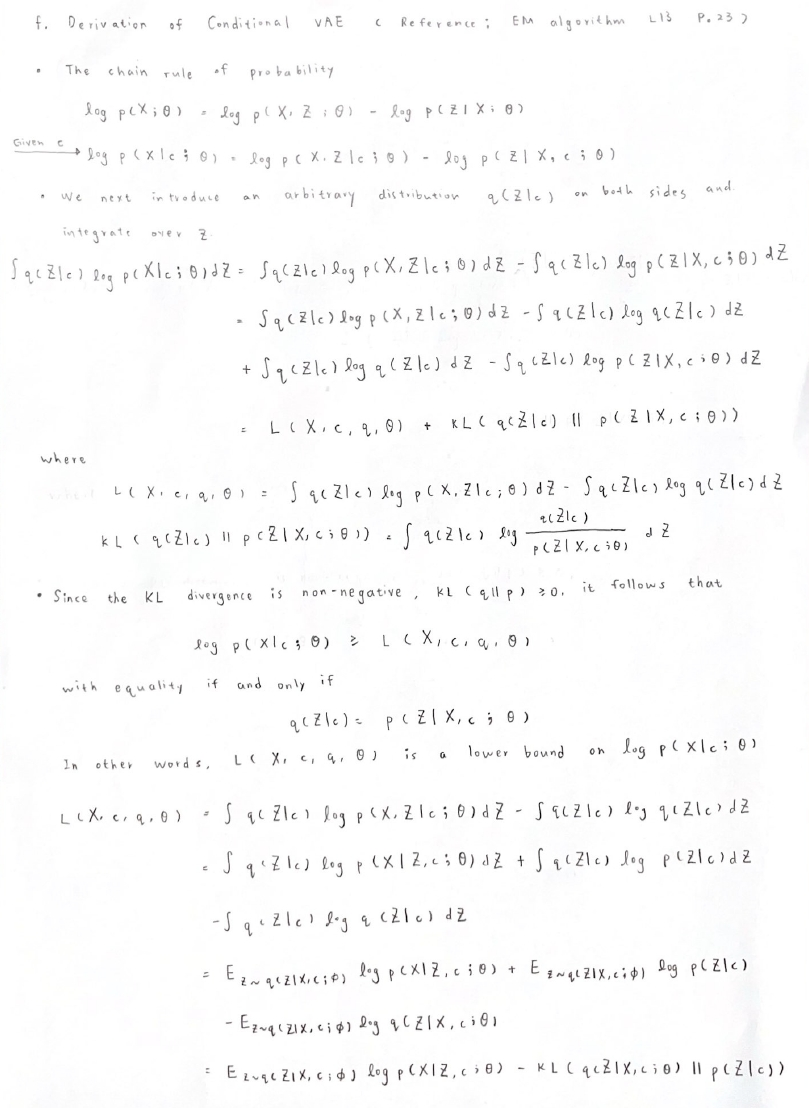 f. Derivation of Conditional VAE ( Reference : EM algorithm L13 P.23 )
• The chain rule of probability
log p(X;θ) = log p(X, Z ; θ) - log p(Z|X; θ)
Given c → log p(X|c;θ) = log p(X, Z|c;θ) - log p(Z|X, c;θ)
• We next introduce an arbitrary distribution q(Z|c) on both sides and
integrate over Z.
∫q(Z|c) log p(X|c;θ)dZ = ∫q(Z|c) log p(X, Z|c;θ)dZ - ∫q(Z|c) log p(Z|X, c;θ) dZ
= ∫q(Z|c) log p(X, Z|c;θ)dZ - ∫q(Z|c) log q(Z|c) dZ
+ ∫q(Z|c) log q(Z|c) dZ - ∫q(Z|c) log p(Z|X, c;θ) dZ
= L(X, c, q, θ) + KL( q(Z|c) || p(Z|X, c;θ))
where
L(X, c, q, θ) = ∫ q(Z|c) log p(X, Z|c;θ)dZ - ∫q(Z|c) log q(Z|c)dZ
KL( q(Z|c) || p(Z|X, c;θ)) = ∫ q(Z|c) log q(Z|c) / p(Z|X, c;θ) dZ
• Since the KL divergence is non-negative, KL(q||p) ≥ 0, it follows that
log p(X|c;θ) ≥ L(X, c, q, θ)
with equality if and only if
q(Z|c) = p(Z|X, c;θ)
In other words, L(X, c, q, θ) is a lower bound on log p(X|c;θ)
L(X, c, q, θ) = ∫ q(Z|c) log p(X, Z|c;θ)dZ - ∫q(Z|c) log q(Z|c)dZ
= ∫ q(Z|c) log p(X|Z, c;θ)dZ + ∫q(Z|c) log p(Z|c)dZ
-∫q(Z|c) log q(Z|c) dZ
= E z~q(Z|X,c;φ) log p(X|Z, c;θ) + E z~q(Z|X,c;φ) log p(Z|c)
- E z~q(Z|X,c;φ) log q(Z|X, c;θ)
= E z~q(Z|X,c;φ) log p(X|Z, c;θ) - KL( q(Z|X, c;θ) || p(Z|c))